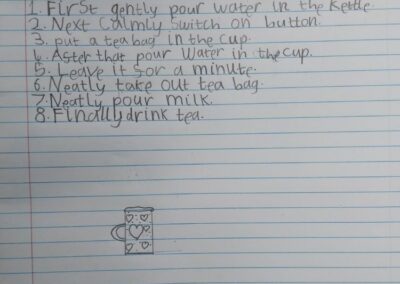 1. First gently pour water in the kettle.
2. Next Calmly switch on button.
3. put a teabag in the cup.
4. Aster that pour Water in the cup.
5. Leave it sor a minute.
6. Neatly take out tea bag.
7. Neatly pour milk.
8. Finally drink tea.